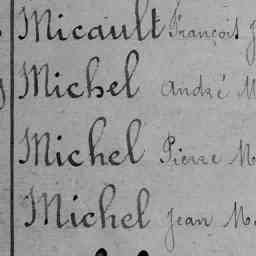 Micault François
Michel André M
Michel Pierre M
Michel Jean M